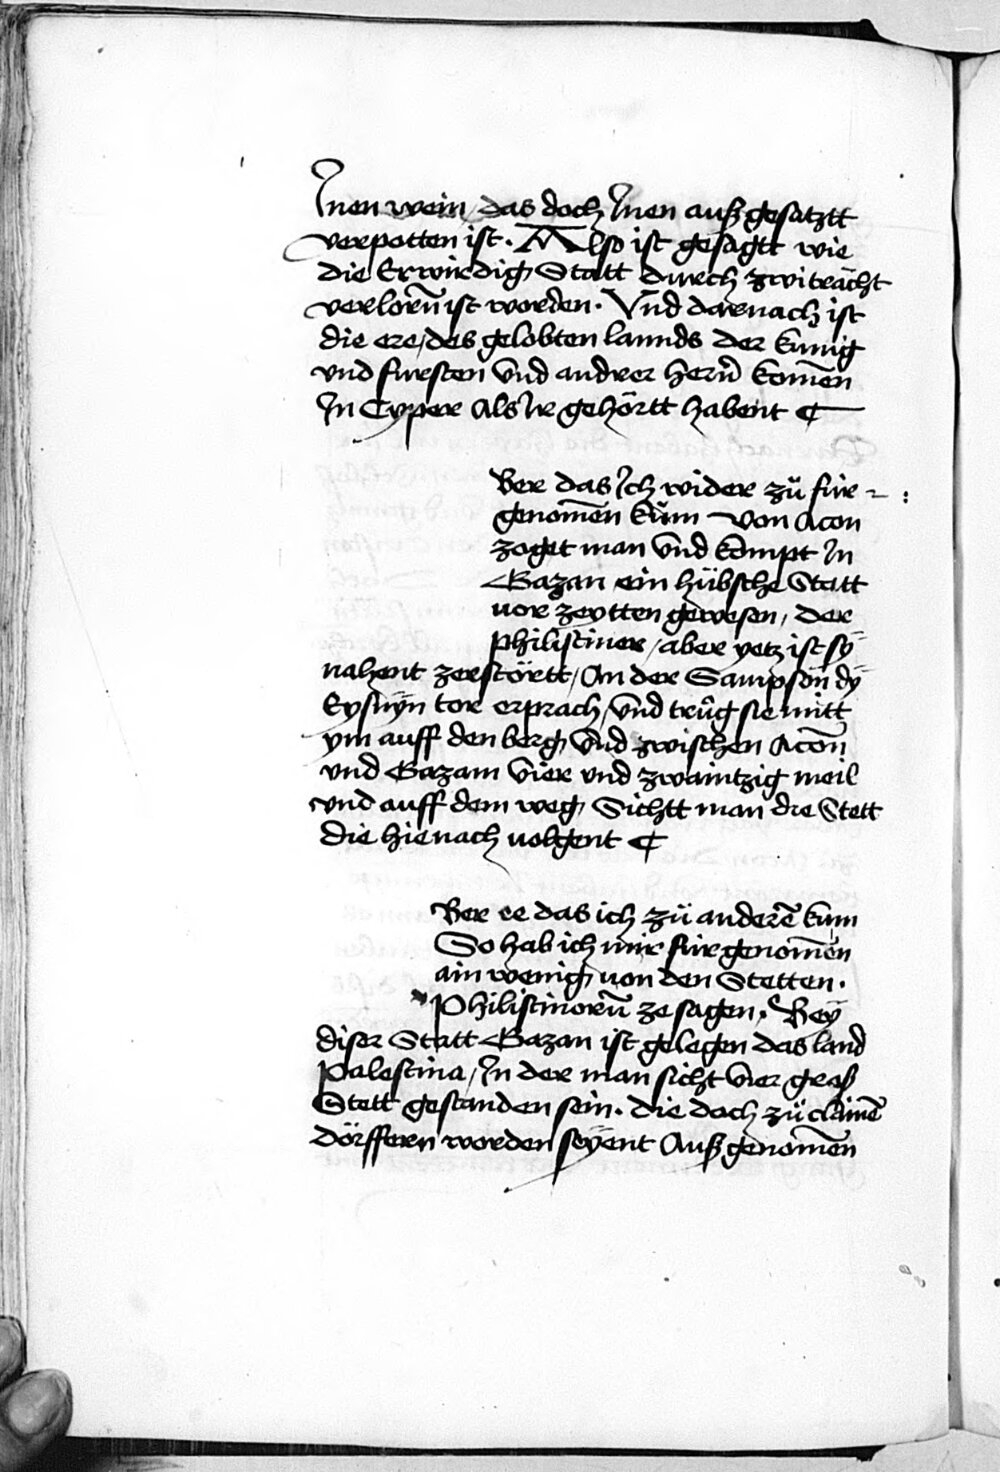 Inen wein / das doch Inen auß gesatztt
verpotten ist. Also ist gesagtt wie
die Erwirdig Statt durch zwitrácht
verlorn̄ ist worden. Vnd darnach ist
die ere / des gelobten lannds der kunig
vnd fursten vnd andrer hern̄ komen̄
In Cyper Als Ir gehörtt habent ¶
Ber das Ich wider zü für ~ :
genomen̄ küm von Acon
zoget man vnd kompt In
Gazan ein hübsche Statt
vor zeytten gewesen / der
philistiner / aber yetz ist sÿ
nahent zerstörtt / An der Sampson dÿ
Eysnÿn tor erprach / vnd trůg sie mitt
ym auff den berg vnd zwischen Acon̄
vnd Gazam vier vnd zwaintzig meil
vnd auff dem weg Sichtt man die Stett
die hienach volgent ¶
Ber ee das ich zü anderē kum
So hab ich mir für genomen̄
ain wenig von den Stetten.
Philistinorū ze sagen. Beÿ
diser Statt Gazan ist gelegen das land
Palestina / In der man sicht vier groß
Stett gestanden sein. die doch zü clainē
dörffern worden seÿent Auß genomen̄